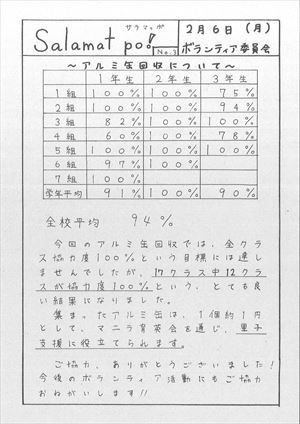 サラマッポ
Salamat po! No.3
2月6日(月)
ボランティア委員会
~アルミ缶回収について~
1年生 2年生 3年生
1組 100% 100% 75%
2組 100% 100% 94%
3組 82% 100% 100%
4組 60% 100% 78%
5組 100% 100% 100%
6組 97% 100%
7組 100%
学年平均 91% 100% 90%
全校平均 94%
今回のアルミ缶回収では、全クラ
ス協力度100%という目標には達し
ませんでしたが、17クラス中12クラ
スが協力度100%という、とても良
い結果になりました。
集まったアルミ缶は、1個約1円
として、マニラ育英会を通じ、里子
支援に役立てられます。
ご協力、ありがとうございました!
今後のボランティア活動にもご協力
おねがいします!!